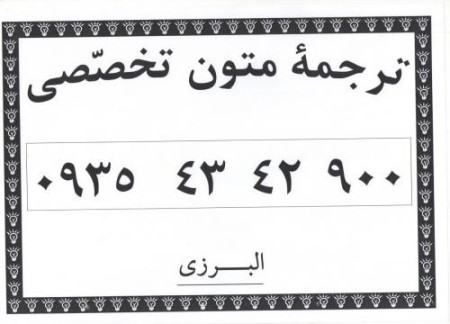 ترجمهٔ متون تخصّصی
۰۹۳۵ ۴۳ ۴۲ ۹۰۰
البرزی